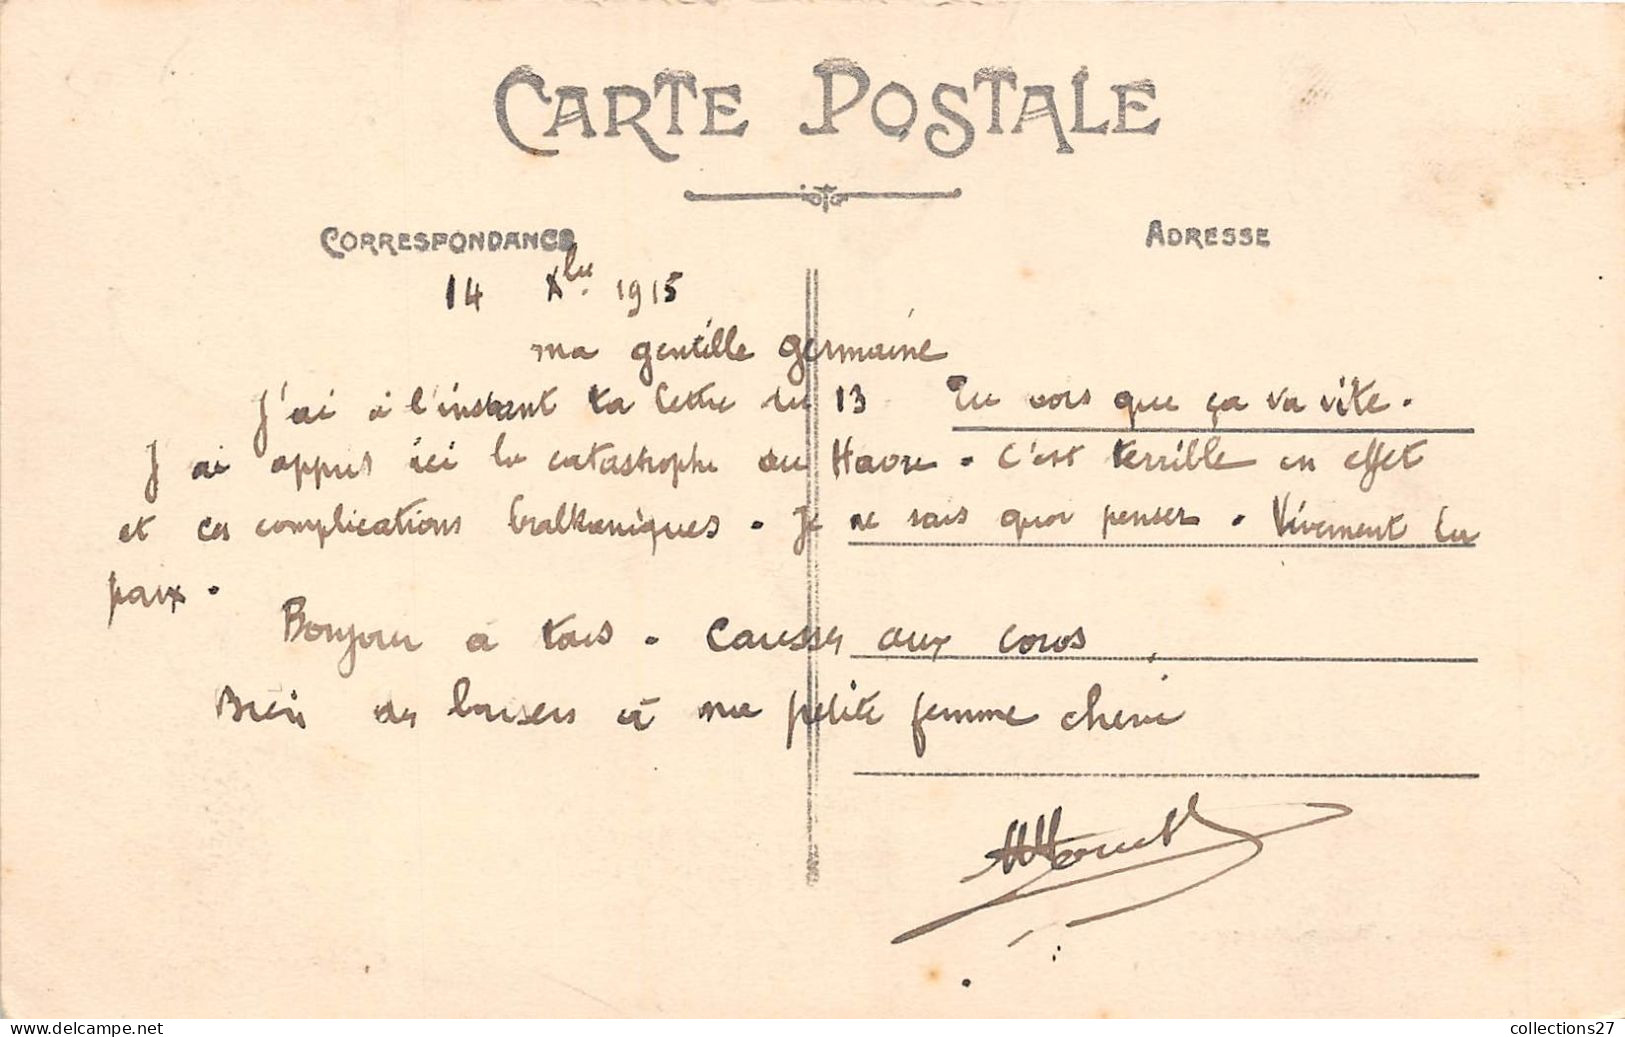 CARTE POSTALE
CORRESPONDANCE
ADRESSE
14 Xbre 1915
ma gentille Germaine
J'ai à l'instant ta lettre du 13 Tu vois que ça va vite.
J'ai appris ici la catastrophe du Havre. C'est terrible en effet
et ces complications balkaniques. Je ne sais quoi penser. Vivement la
paix.
Bonjour à tous. Caresses aux cocos.
Bien des baisers à ma petite femme chérie
collections27
www.delcampe.net